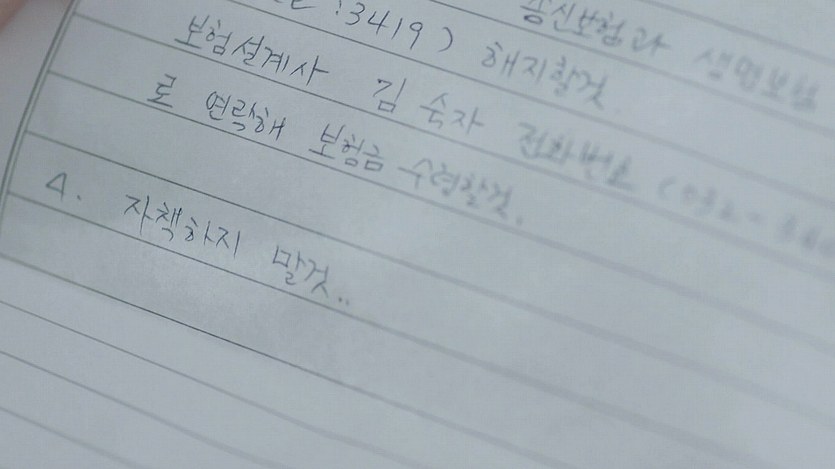 :3419) 해지할것
종신보험과 생명보험
보험설계사 김숙자 전화번호 (032-
로 연락해 보험금 수령할것.
4. 자책하지 말것..